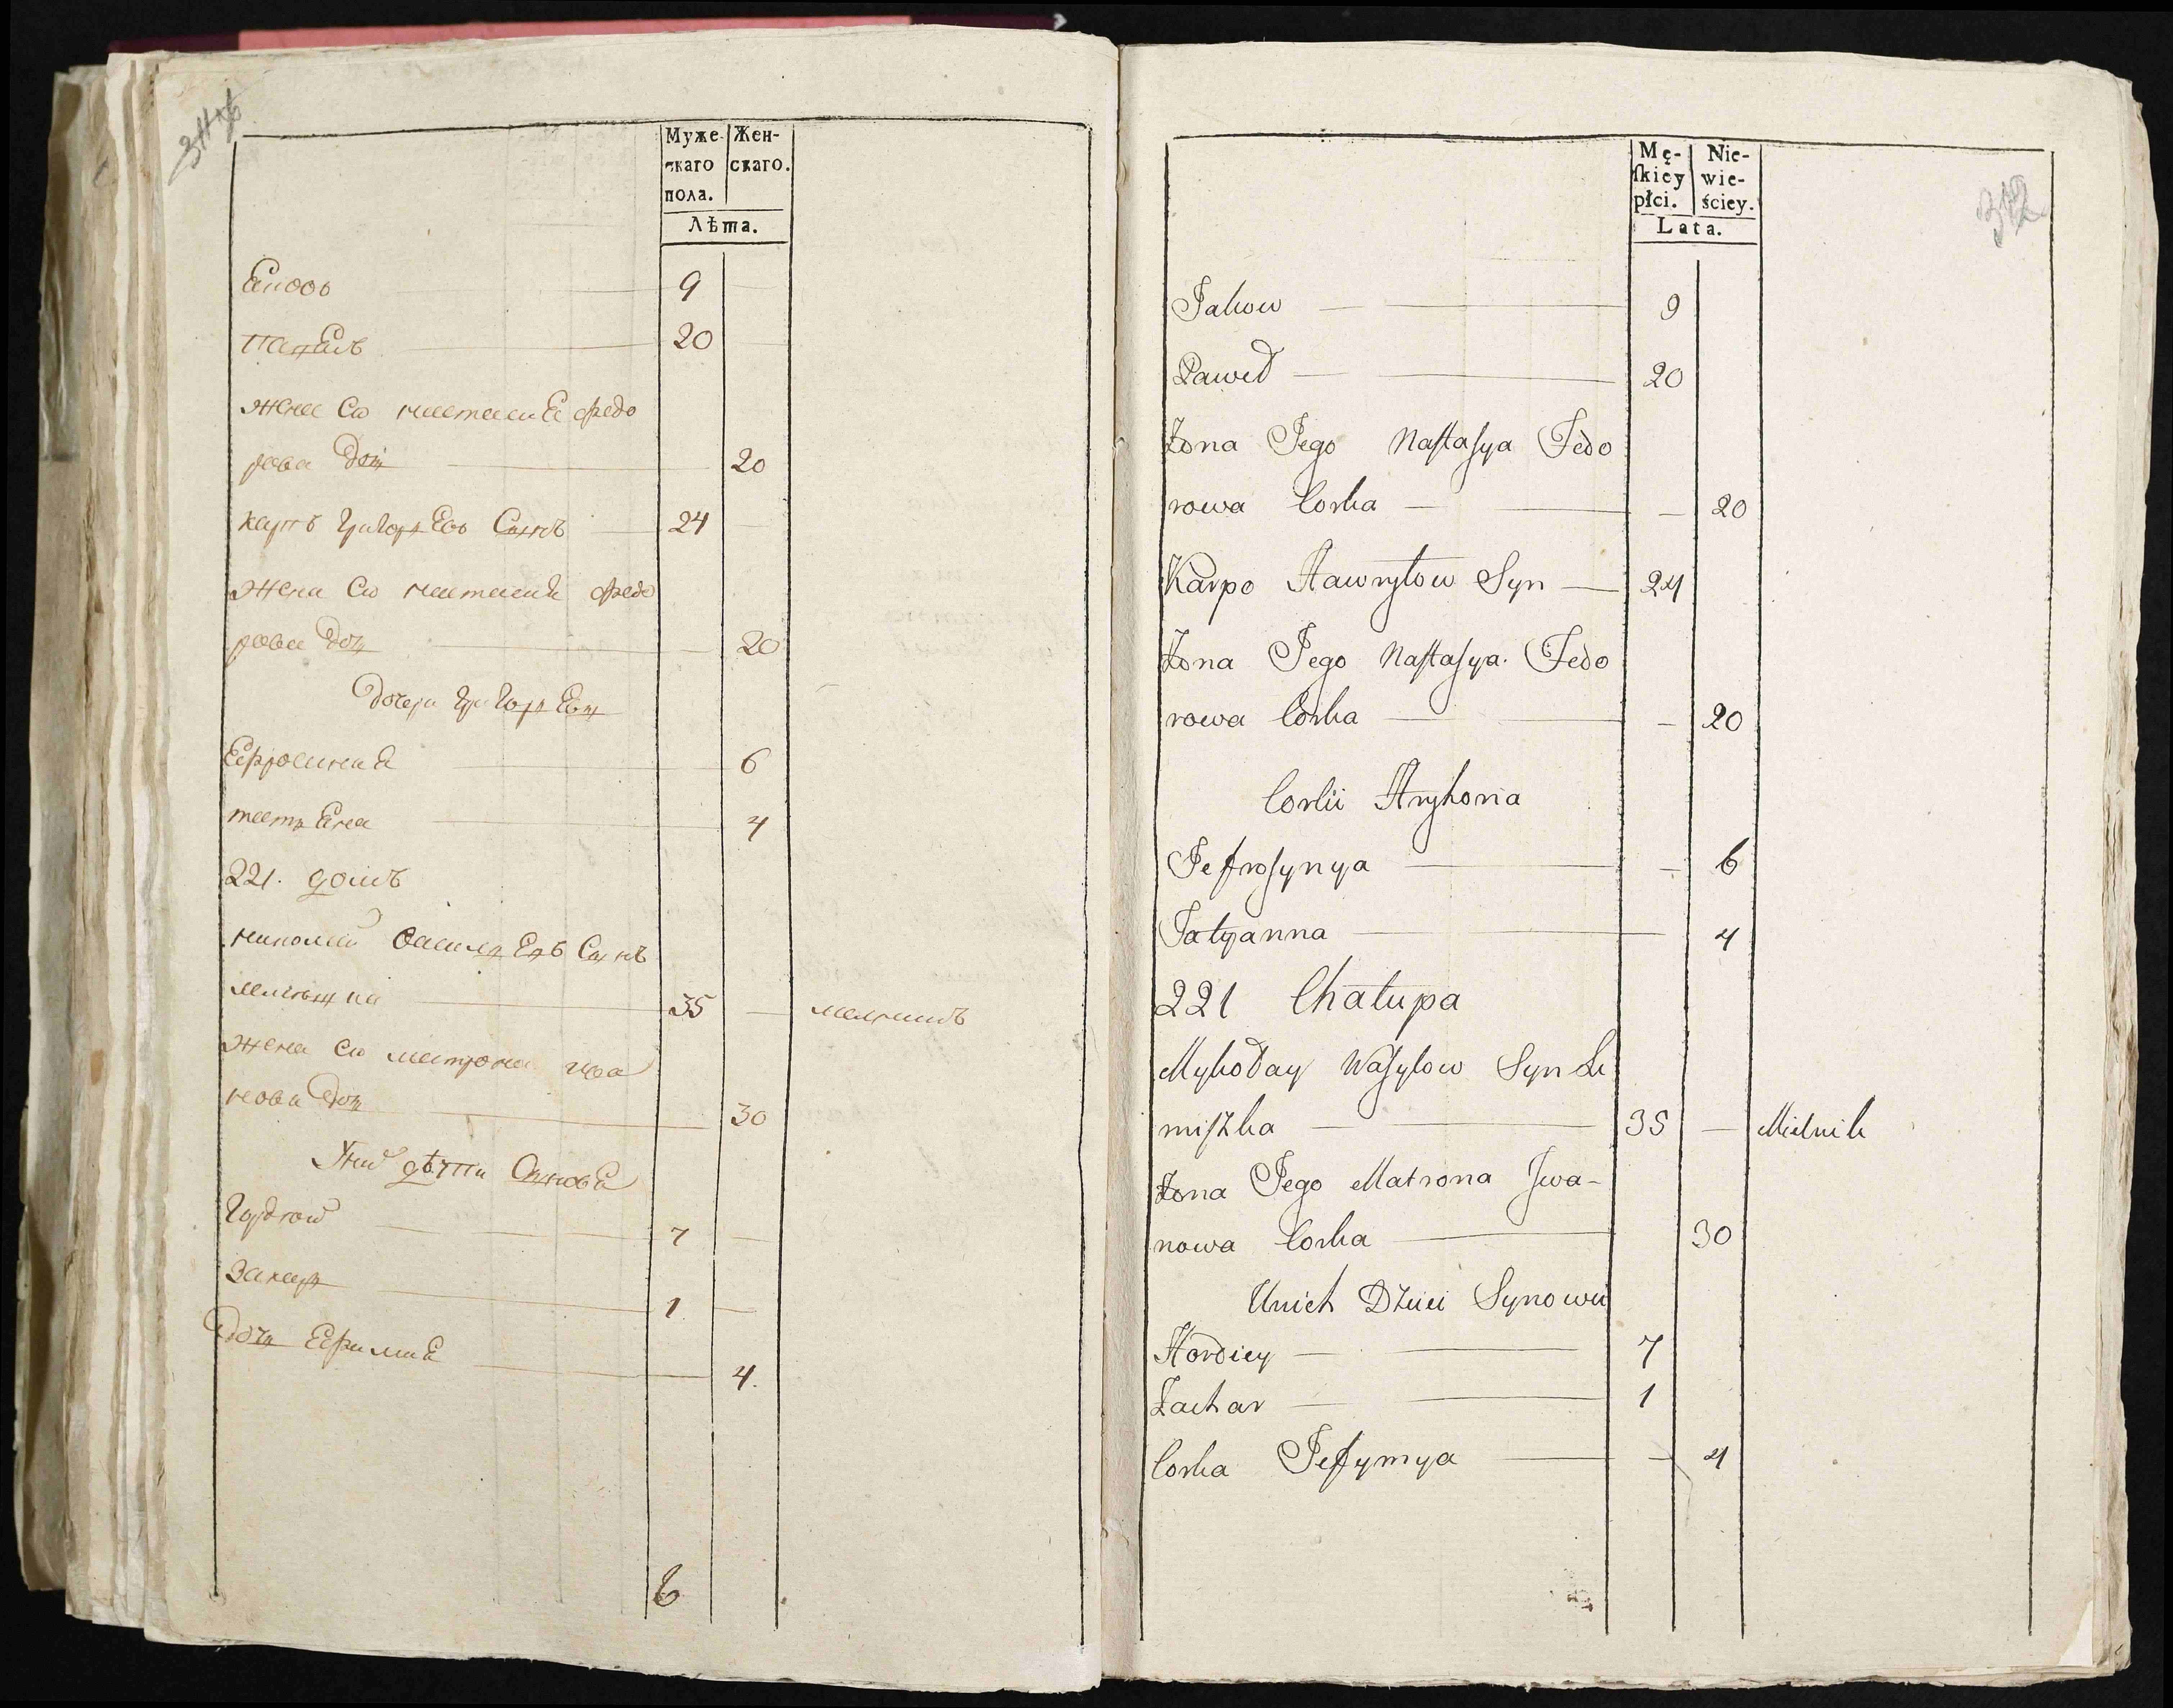 Муже-
скаго
пола.
Жен-
скаго.
Лѣта.
9
20
жена Ево настасия Федо
рова доч 20
карпъ григориевъ Сынъ 24
жена Ево настасия Федо
рова доч 20
дочери григориевы
Ефросиния 6
татияна 4
221. домъ
николай василиевъ Сынъ
35 мелникъ
жена Ево матрона ива
нова доч 30
У них дѣти Синовя
гордѣй 7
захар 1
дочь Ефимия 4.
6
312
Mę-
ſkiey
płci.
Nie-
wie-
ściey.
Lata.
Jakow 9
Paweł 20
Żona Jego Nastasya Fedo
rowa Corka — 20
Karpo Hawryłow Syn — 24
Żona Jego Nastasya Fedo
rowa Corka — 20
Corki Hryhoria
Jefrosynya — 6
Tatyanna 4
221 Chałupa
Mykołay Wasylow Syn Kli
miszka 35 — Mielnik
Żona Jego Matrona Jwa-
nowa Corka 30
Unich Dzieci Synowie
Hordiey 7
Zachar 1
Corka Jefymya — 4